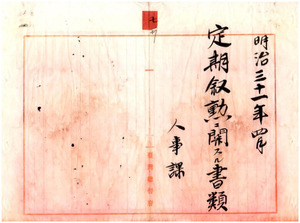 明治三十一年四月
定期叙勲ニ関スル書類
人事課